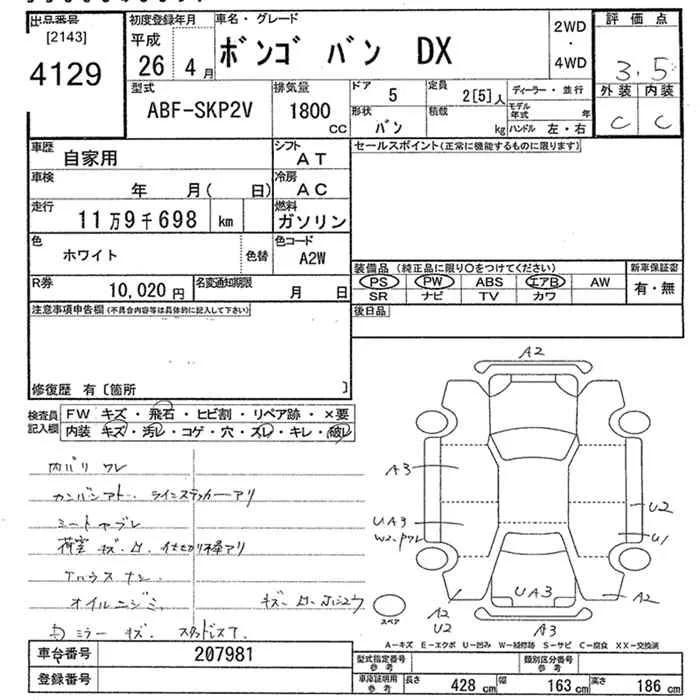 出品番号
[2143]
4129
初度登録年月
平成
26 4月
車名・グレード
ボンゴ バン DX
2WD
・
4WD
評価点
3.5
外装 内装
C C
型式
ABF-SKP2V
排気量
1800
cc
ドア 5
定員 2[5]人
ディーラー・並行
形状 バン
積載 kg
モデル年式 年
ハンドル 左・右
車歴 自家用
シフト AT
セールスポイント(正常に機能するものに限ります)
車検 年 月( 日)
冷房 AC
走行 11万9千698 km
燃料 ガソリン
色 ホワイト
色替
色コード A2W
装備品 (純正品に限り○をつけてください)
PS PW ABS エアB AW
SR ナビ TV カワ
新車保証書
有・無
R券 10,020円
名変通知期限 月 日
後日品
注意事項申告欄(不具合内容等は具体的に記入して下さい)
修復歴 有〔箇所 〕
検査員記入欄
FW キズ・飛石・ヒビ割・リペア跡・×要
内装 キズ・汚レ・コゲ・穴・スレ・キレ・破レ
内バリ ワレ
カンバンアト. ラインステッカーアリ
シートヤブレ
荷室 キズ.凹.
オイルニジミ
ミラー キズ. スタッドレスT.
A2
A3
UA3
U2
U1
UA3
A2
U2
A3
A2
スペア
A-キズ E-エクボ U-凹み W-補修跡 S-サビ C-腐食 XX-交換済
車台番号 207981
登録番号
型式指定番号 参考
類別区分番号 参考
車庫証明用 参考
長さ 428 cm
幅 163 cm
高さ 186 cm